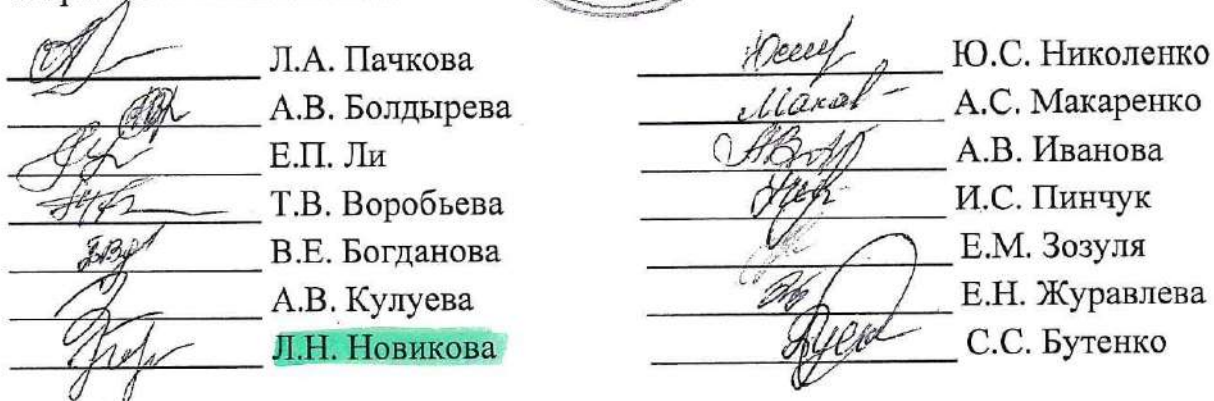 Л.А. Пачкова
А.В. Болдырева
Е.П. Ли
Т.В. Воробьева
В.Е. Богданова
А.В. Кулуева
Л.Н. Новикова
Ю.С. Николенко
А.С. Макаренко
А.В. Иванова
И.С. Пинчук
Е.М. Зозуля
Е.Н. Журавлева
С.С. Бутенко